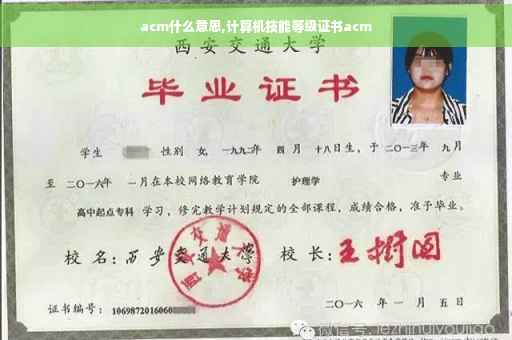 acm什么意思,计算机技能等级证书acm
西安交通大学
毕业证书
学生 性别 女, 一九九二年 四月 十八日生, 于 二〇一三年 九月
至 二〇一六年 一月在本校网络教育学院 护理学 专业
高中起点专科 学习, 修完教学计划规定的全部课程, 成绩合格, 准予毕业。
校 名: 西安交通大学 校 长: 王树国
证书编号: 1069872016060
二〇一六 年 一 月 五 日
微信号: lezhihuiyoujiao